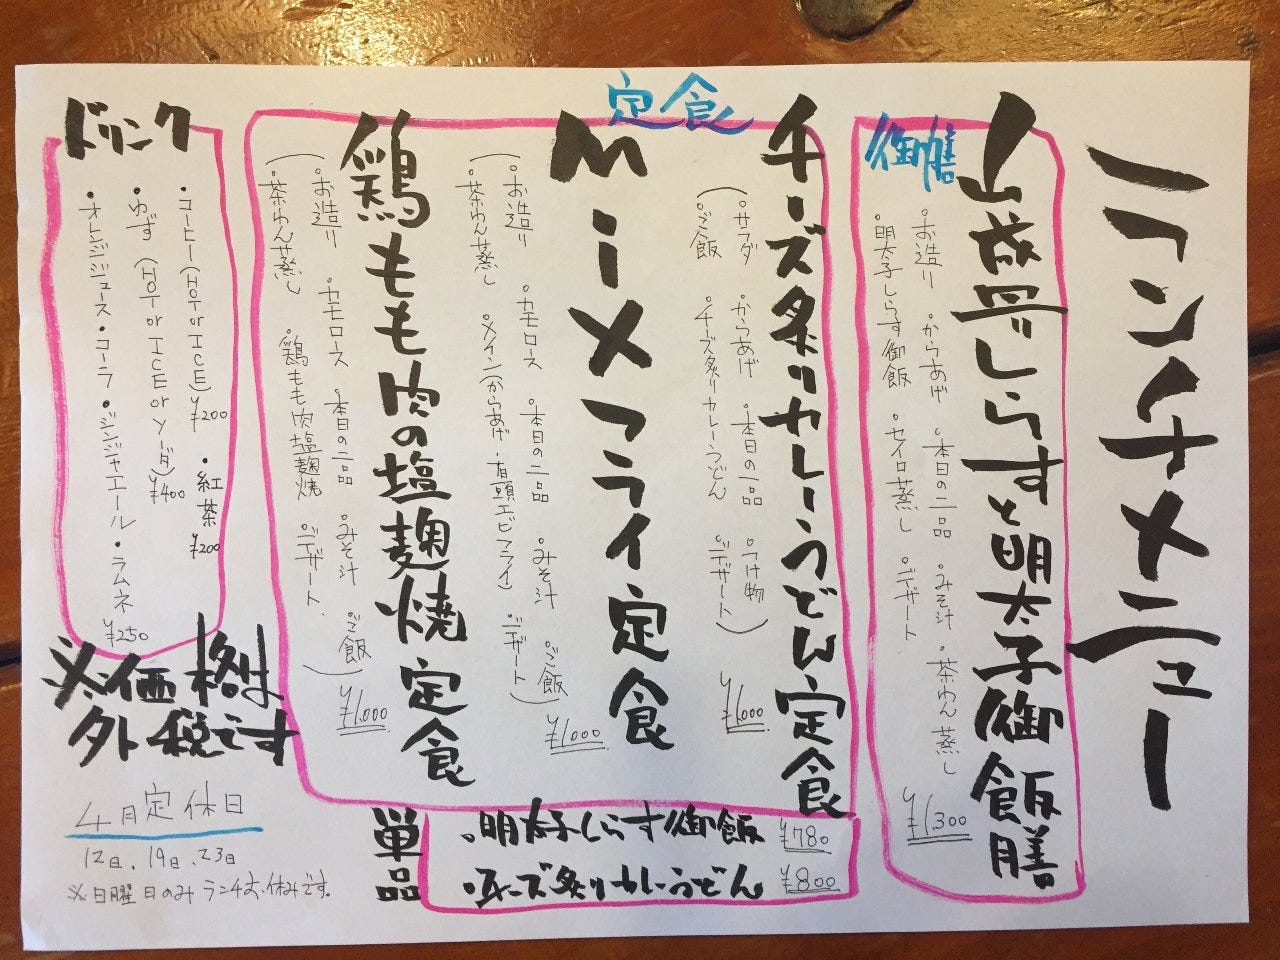 ランチメニュー
御膳
山盛りしらすと明太子御飯膳
・お造り ・からあげ ・本日の一品 ・みそ汁 ・茶わん蒸し
・明太子しらす御飯 ・セイロ蒸し ・デザート
¥1,300
定食
チーズ炙りカレーうどん定食
(・サラダ ・からあげ ・本日の一品 ・つけ物
・ご飯 ・チーズ炙りカレーうどん ・デザート)
¥1,000
Miーメフライ定食
・お造り ・カモロース ・本日の一品 ・みそ汁 ・ご飯
(・茶わん蒸し ・メイン(からあげ・有頭エビフライ) ・デザート)
¥1,000
鶏もも肉の塩麹焼定食
・お造り ・カモロース ・本日の一品 ・みそ汁 ・ご飯
(・茶わん蒸し ・鶏もも肉塩麹焼 ・デザート)
¥1,000
単品
・明太子しらす御飯 ¥780
・チーズ炙りカレーうどん ¥800
ドリンク
・コーヒー(HOT or ICE) ¥200 ・紅茶 ¥200
・ゆず(HOT or ICE or ソーダ) ¥400
・オレンジジュース・コーラ・ジンジャエール・ラムネ ¥250
※価格は
外税です
4月定休日
12日、19日、23日
※日曜日のみランチお休みです。